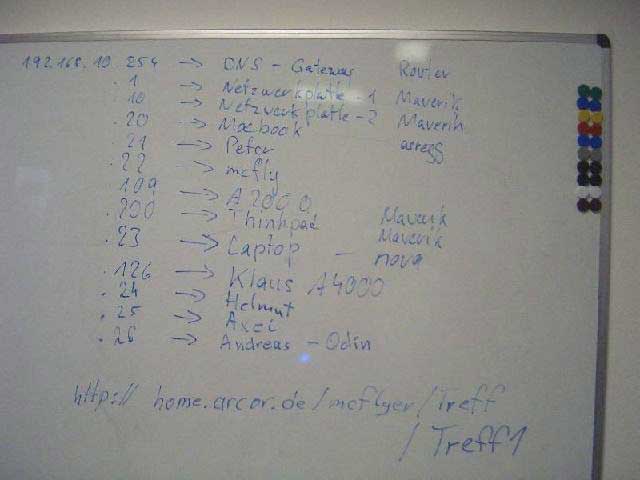 192.168.10.254 → DNS - Gateway Router
.1 → Netzwerkplatte - 1 Maverik
10 → Netzwerkplatte - 2 Maverik
.20 → Macbook aeregg
21 → Peter
.22 → mcfly
109 → A2000
.200 → Thinkpad Maverik
.23 → Laptop - Maverik nova
.126 → Klaus A4000
.24 → Helmut
.25 → Axel
.26 → Andreas - Odin
http:// home.arcor.de/mcflyer/Treff
/Treff1